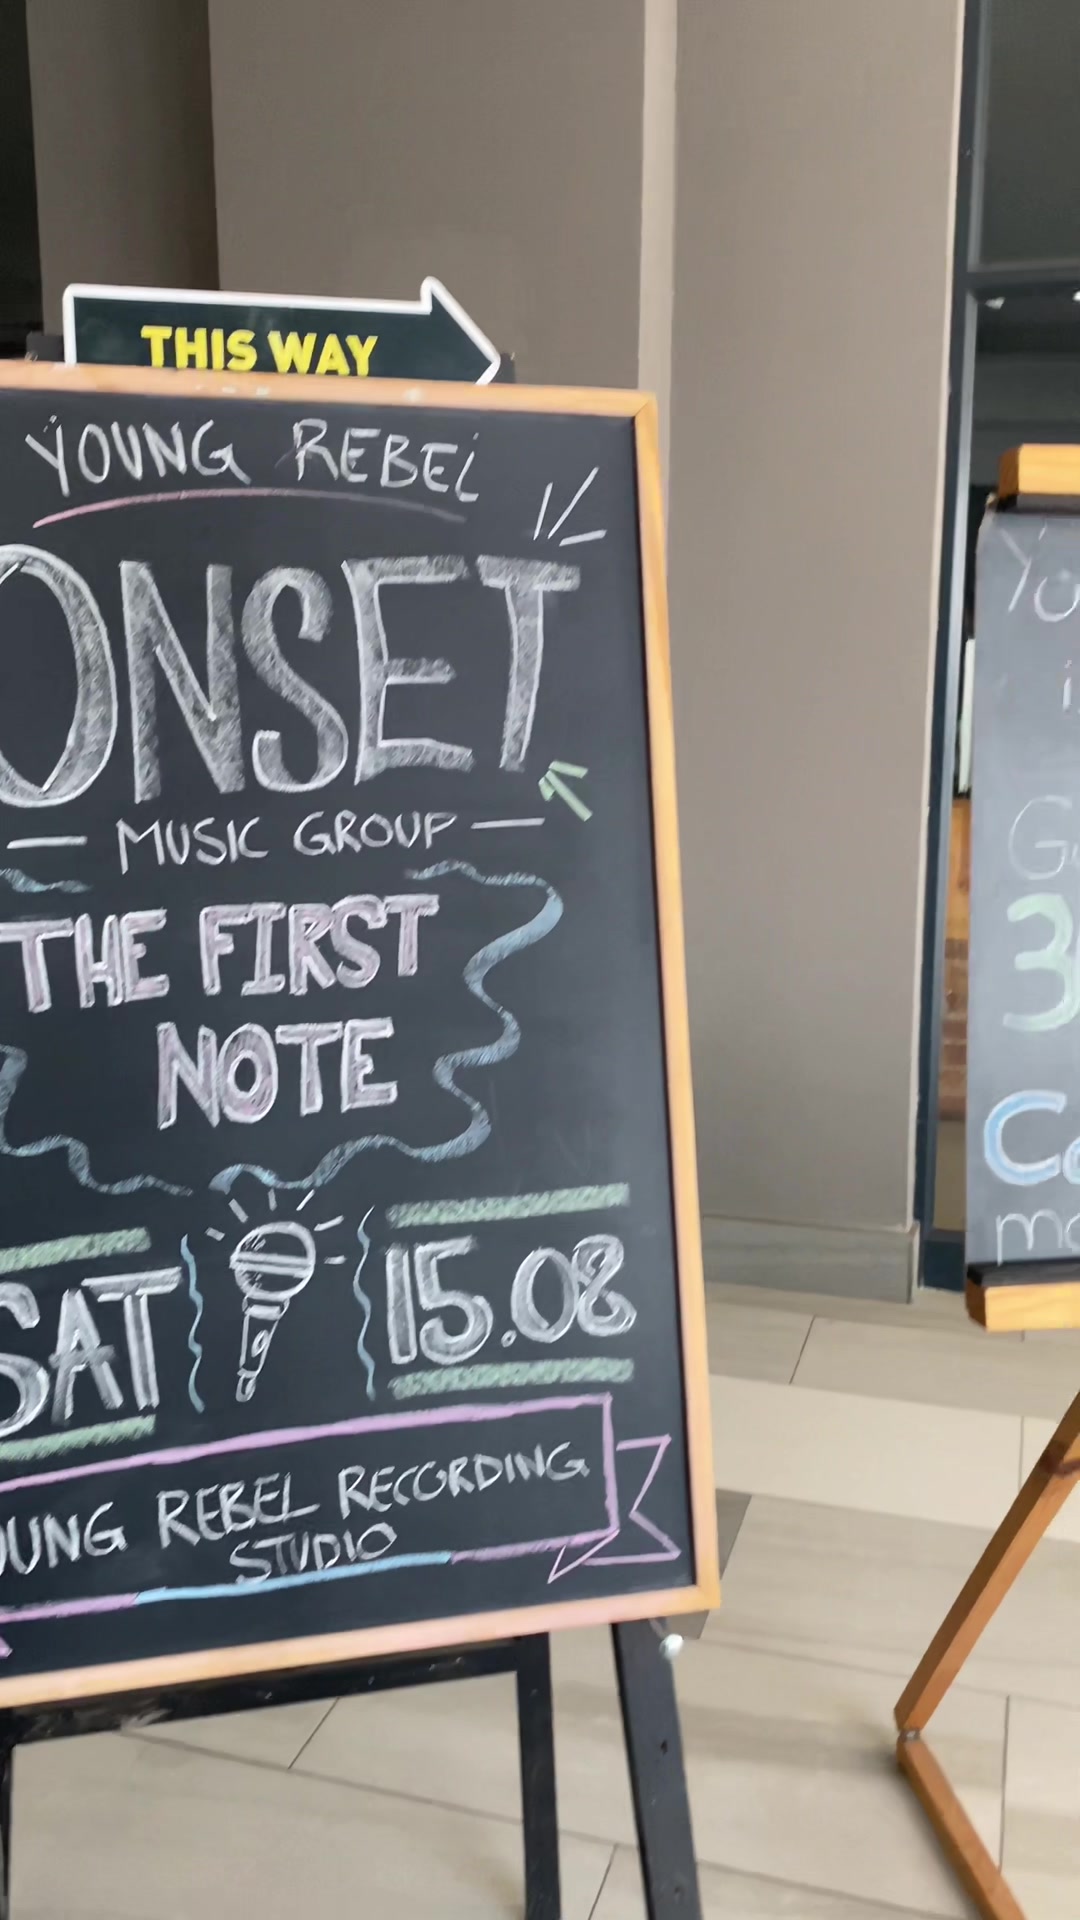 THIS WAY
YOUNG REBEL
ONSET
— MUSIC GROUP —
THE FIRST
NOTE
SAT
15.08
YOUNG REBEL RECORDING
STUDIO